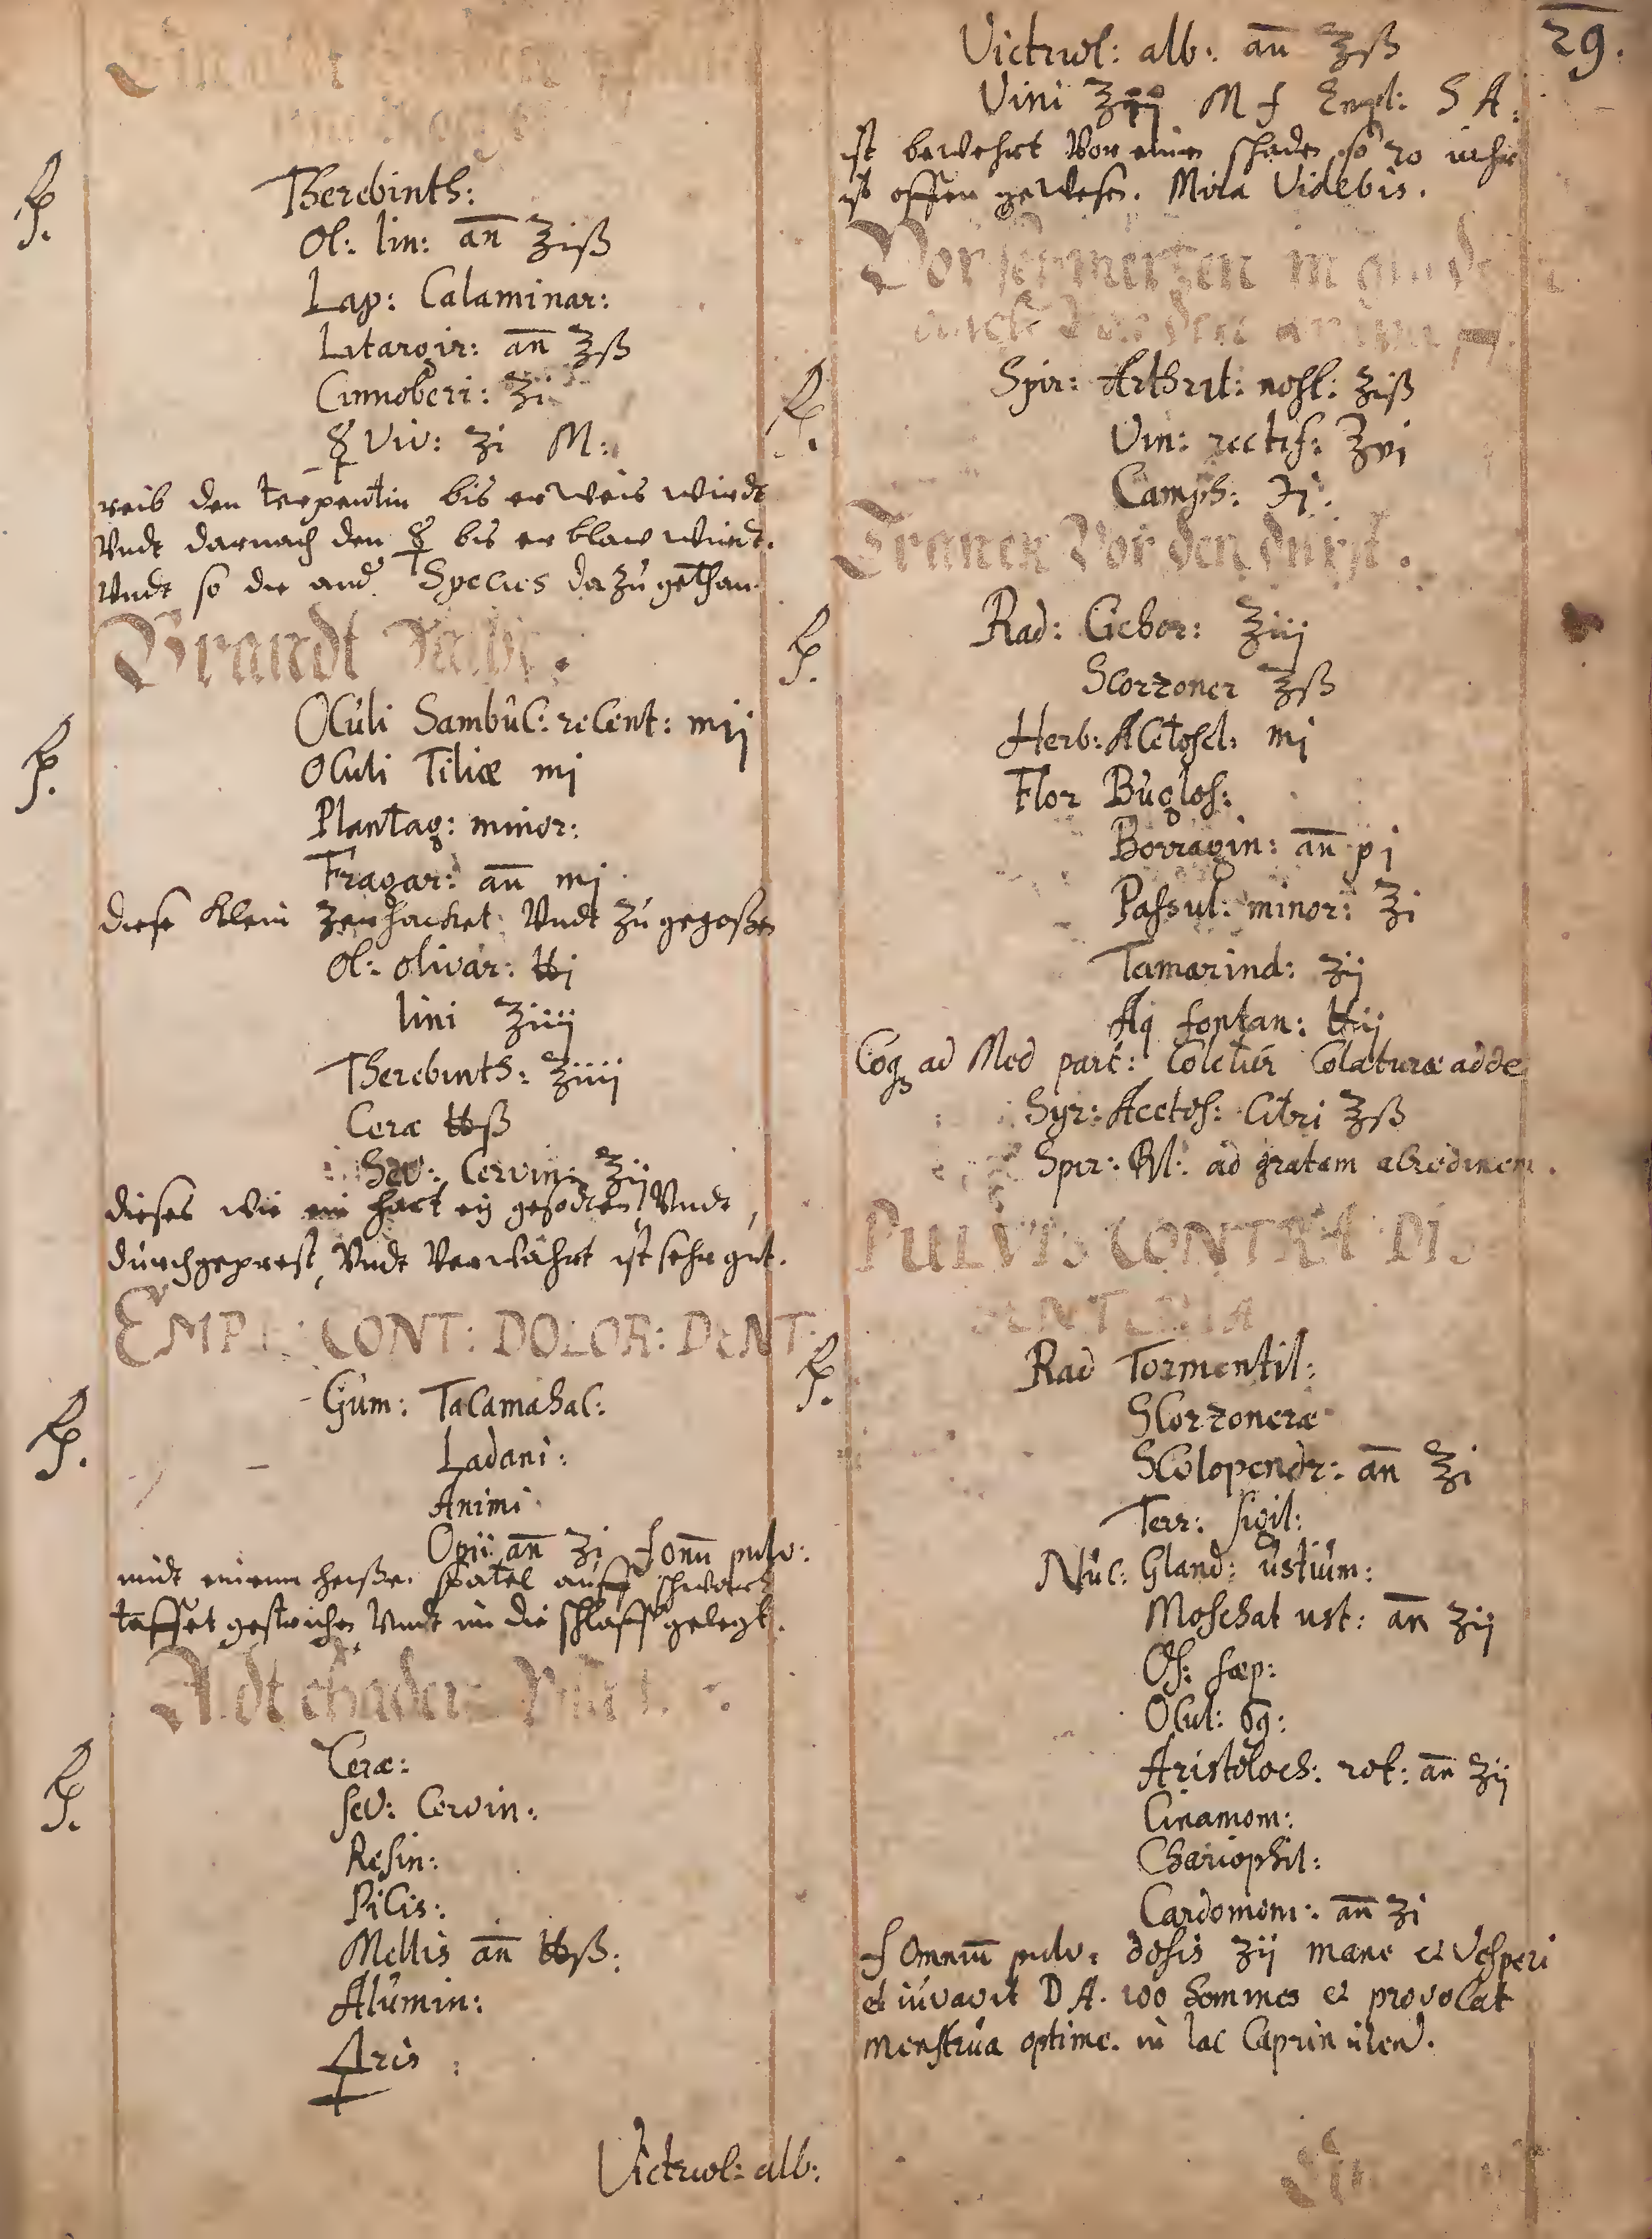 ℞.
Therebinth:
Ol: lin: an̄ ℥iß
Lap: Calaminar:
Litargir: an̄ ℥ß
Cinnoberi: ʒi
☿ Viv: ʒi M:
reib den terpentin bis er weis wirdt
Vndt darnach den ☿ bis er blaw wirdt.
Vndt so die and. Species da zu gethan.
Brandt Salbe.
℞.
Oculi Sambuc: recent: mij
Oculi Tiliæ mj
Plantag: minor:
Fragar: an̄ mj
diese klein zerhacket Vndt zu gegoßen
Ol: olivar: ℔j
lini ℥iiij
Therebinth: ℥iiij
Ceræ ℔ß
Sev: Cervin: ℥ij
dieses wie ein hart eij gesodten, Vndt
durchgeprest, Vndt Verwahrt ist sehr gut.
EMPL: CONT: DOLOR: DENT:
℞.
Gum: Tacamahac:
Ladani:
Animi
Opii an̄ ʒi f om̄ pulv:
midt einem heißen spatel auff schwartz
taffet gestrichen Vndt in die schlaff gelegt.
Aldt schaden
℞.
Ceræ:
sev: Cervin:
Resin:
Picis:
Mellis an̄ ℔ß:
Alumin:
Æris:
Victriol: alb:
29.
Victriol: alb: an̄ ℥ß
Vini ℥iij M f Empl: S A:
ist bewehrt Vor einen shaden so 20 iahr
ist offen gewesen. Mira Videbis.
Vor schmertzen in
℞.
Spir: Arthrit: nost: ℥iß
Vin: rectif: ℥vj
Camph: ʒj.
Tranck Vor den durst.
℞.
Rad: Cichor: ℥iij
Scorzoner ℥ß
Herb: Acetosel: mj
Flor Buglos:
Borragin: an̄ pj
Passul: minor: ℥i
Tamarind: ʒij
Aq fontan: ℔ij
Coq ad Med part: Coletur Colaturæ adde
Syr: Acetos: Citri ℥ß
Spir: ad gratam acredinem.
PULVIS CONTRA DIS
SENTERIA
℞.
Rad Tormentil:
Scorzoneræ
Scolopendr: an̄ ℥i
Terr: sigil:
Nuc: Gland: ustium:
Moschat ust: an̄ ʒij
Os: sæp:
Ocul: 69:
Aristoloch: rot: an̄ ʒij
Cinamom:
Chariophil:
Cardomom: an̄ ʒi
f Omniū pulv: dosis ʒij mane et Vesperi
et iuvavit D A. 100 homines et provocat
menstrua optime. in lac Caprin